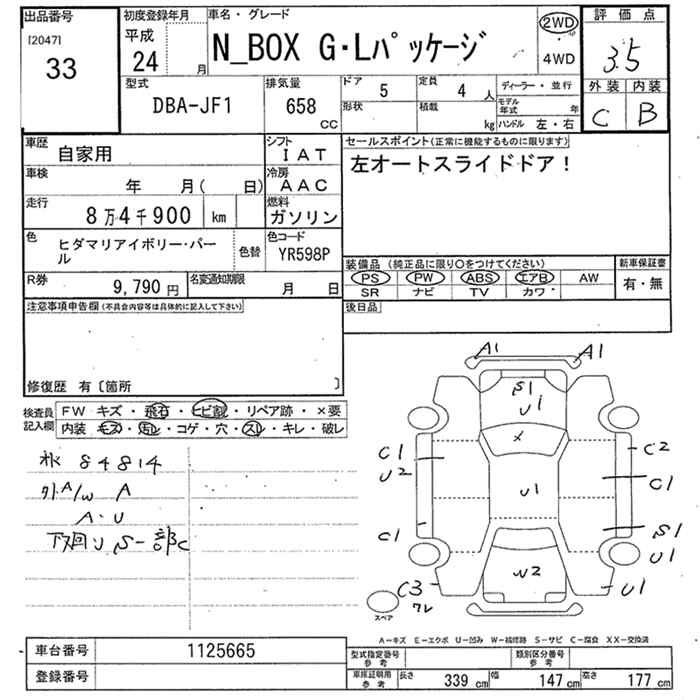 出品番号
[2047]
33
初度登録年月
平成
24 月
車名・グレード
N_BOX G・Lパッケージ
2WD
・
4WD
評価点
3.5
外装 内装
C B
型式
DBA-JF1
排気量
658
CC
ドア 5
形状
定員 4 人
積載 kg
ディーラー・並行
モデル年式 年
ハンドル 左・右
車歴
自家用
シフト
IAT
車検 年 月( 日)
冷房
AAC
走行
8万4千900 km
燃料
ガソリン
色
ヒダマリアイボリー・パール
色替
色コード
YR598P
R券
9,790 円
名変通知期限
月 日
セールスポイント(正常に機能するものに限ります)
左オートスライドドア!
装備品(純正品に限り〇をつけてください)
PS PW ABS エアB AW
SR ナビ TV カワ
新車保証書
有・無
後日品
注意事項申告欄(不具合内容等は具体的に記入して下さい)
修復歴 有〔箇所 〕
検査員記入欄
FW キズ・飛石・ヒビ割・リペア跡・×要
内装 キズ・汚レ・コゲ・穴・スレ・キレ・破レ
84814
A/W A
A・U
下廻りS一部C
A1 A1
S1
U1
×
C1
U2
C2
C1
U1
C1
S1
U1
W2
C3
ワレ
U1
スペア
A-キズ E-エクボ U-凹み W-補修跡 S-サビ C-腐食 XX-交換済
車台番号 1125665
登録番号
型式指定番号
参考
類別区分番号
参考
車庫証明用
参考
長さ 339 cm 幅 147 cm 高さ 177 cm